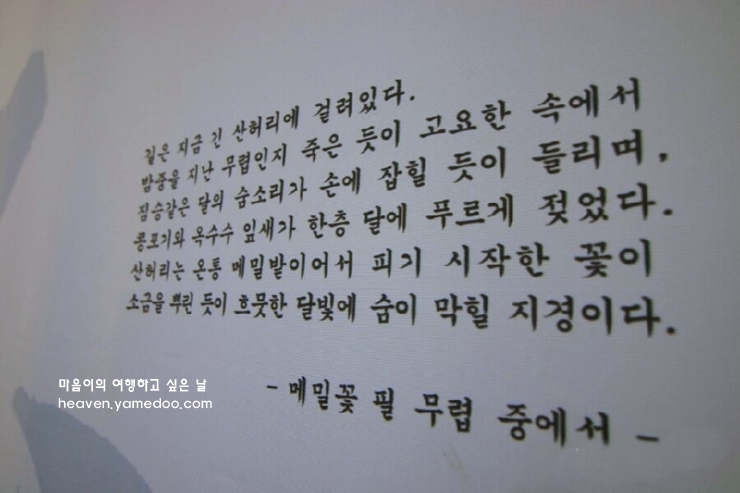 길은 지금 긴 산허리에 걸려있다.
밤중을 지난 무렵인지 죽은 듯이 고요한 속에서
짐승같은 달의 숨소리가 손에 잡힐 듯이 들리며,
콩포기와 옥수수 잎새가 한층 달에 푸르게 젖었다.
산허리는 온통 메밀밭이어서 피기 시작한 꽃이
소금을 뿌린 듯이 흐뭇한 달빛에 숨이 막힐 지경이다.
- 메밀꽃 필 무렵 중에서 -
마음이의 여행하고 싶은 날
heaven.yamedoo.com